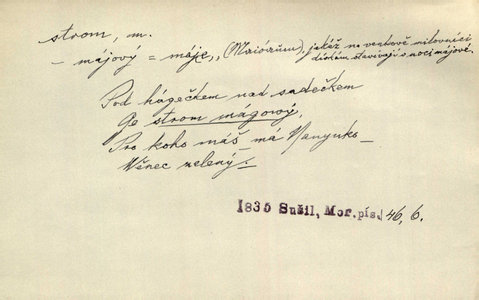 strom, m.
– májový = máje, (Maiórům), jakéž na venkově milovníci
dívkám stavívají v noci májové.
Pod hágečkem nad sadečkem
Ge strom mágowý,
Pro koho máš – má Nanynko –
Wěnec zelený. –
1835 Sušil, Mor. pís. 46, 6.